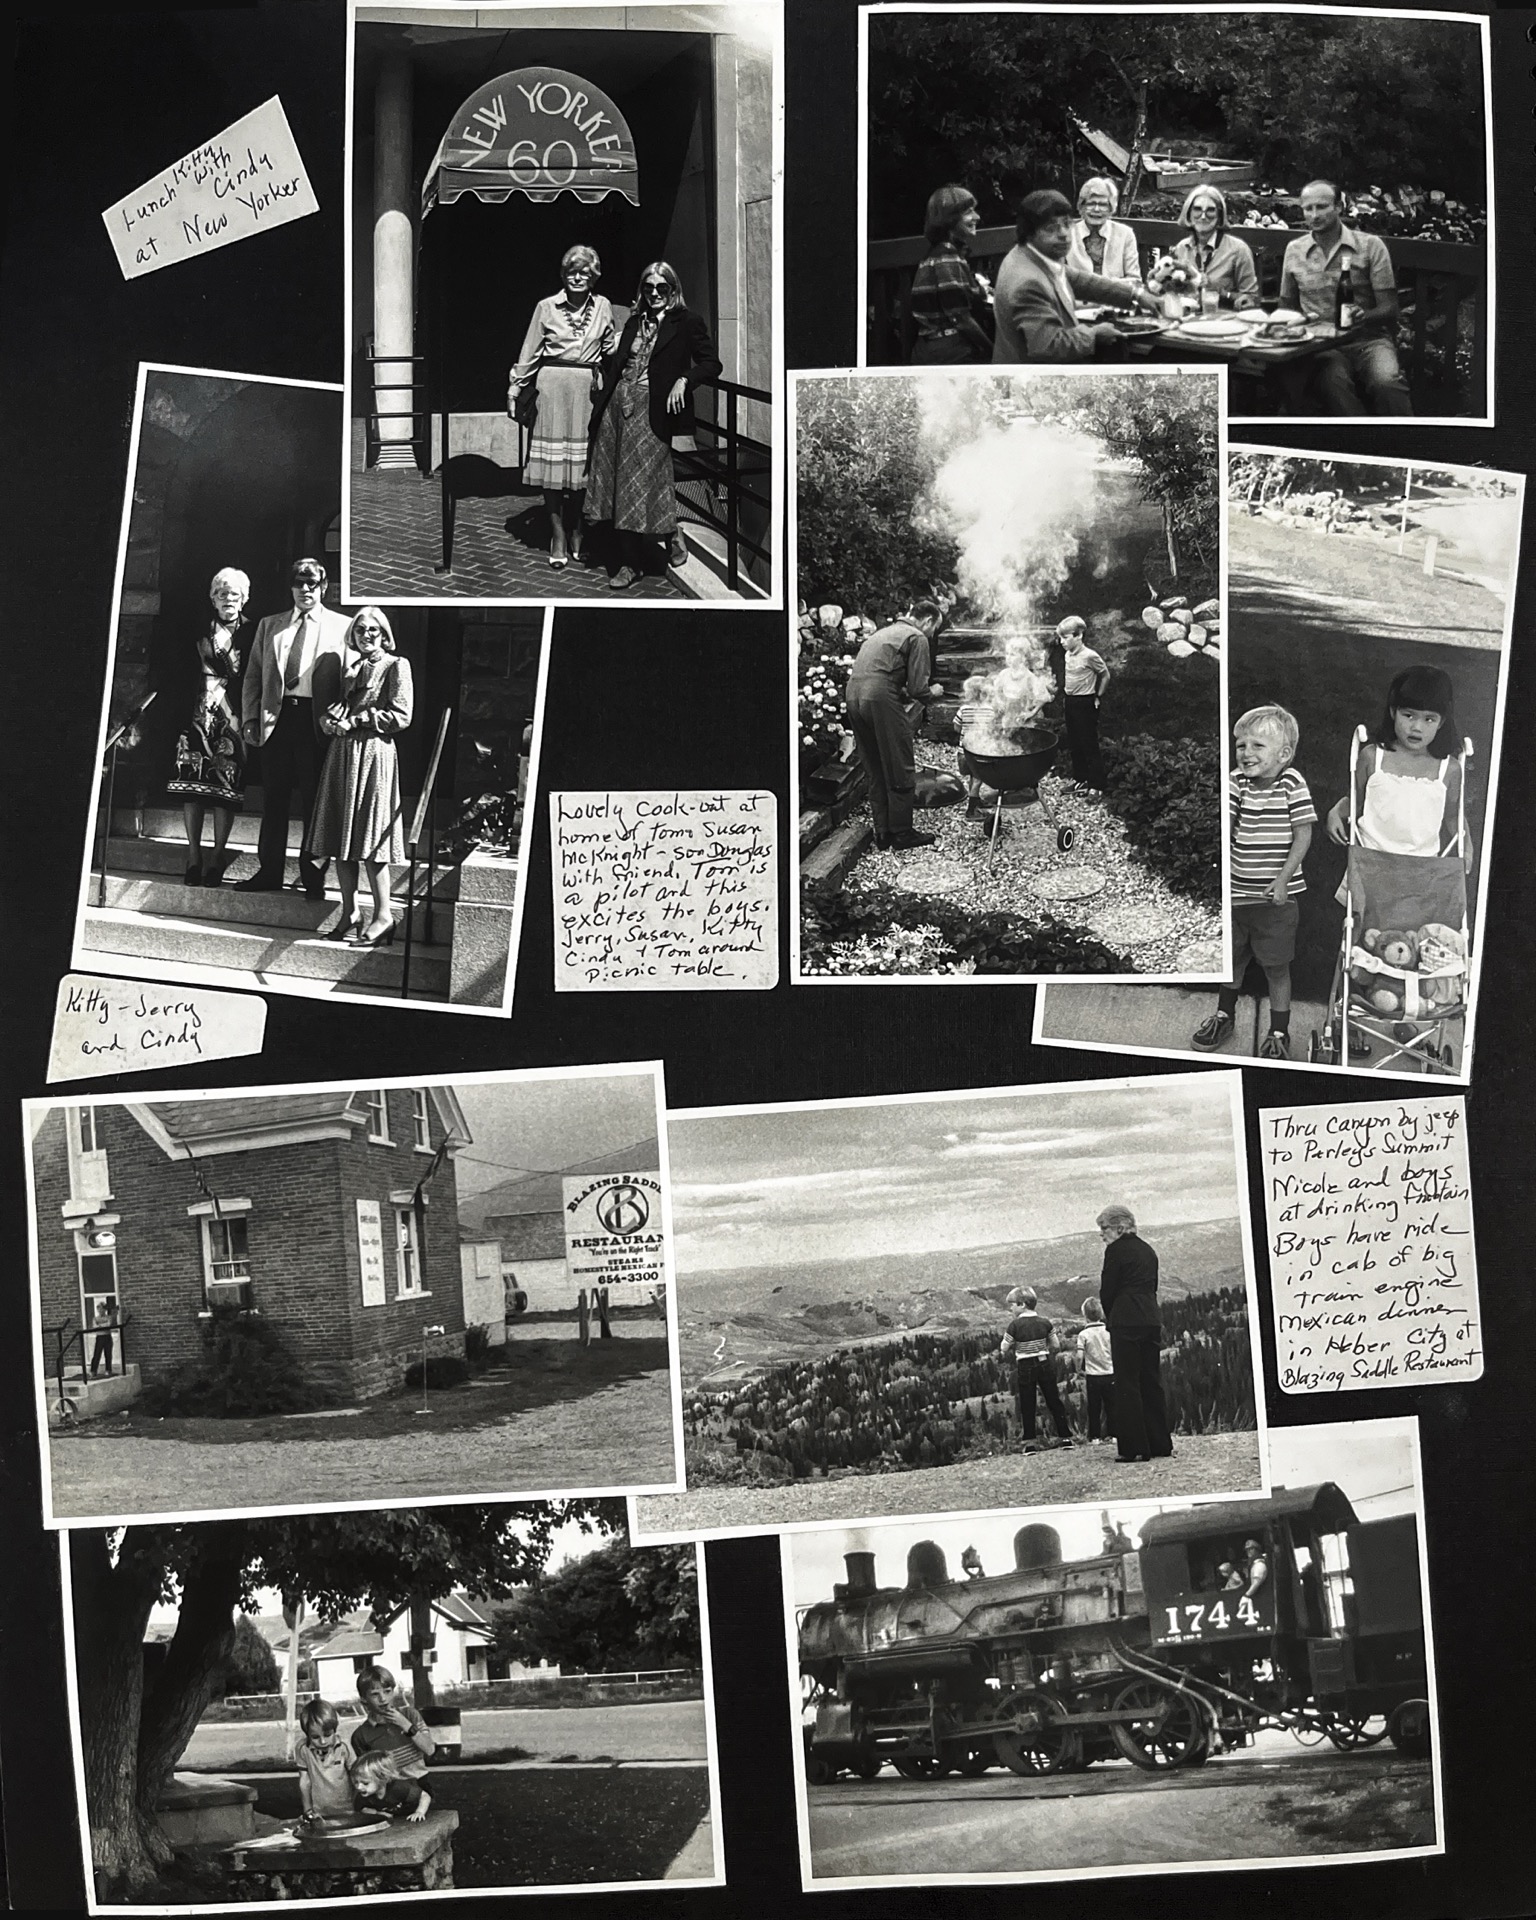 Lunch Kitty with
Cindy
at New Yorker
NEW YORKER
60
Kitty - Jerry
and Cindy
Lovely Cook-out at
home of Tom & Susan
McKnight - son Douglas
with friend. Tom is
a pilot and this
excites the boys.
Jerry, Susan, Kitty
Cindy & Tom around
Picnic table.
BLAZING SADDL
B
RESTAURAN
"You're on the Right Track"
STEAKS
HOMESTYLE MEXICAN F
654-3300
Thru Canyon by jeep
to Parleys Summit
Nicole and boys
at drinking fountain
Boys have ride
in cab of big
train engine
Mexican dinner
in Heber City at
Blazing Saddle Restaurant
1744